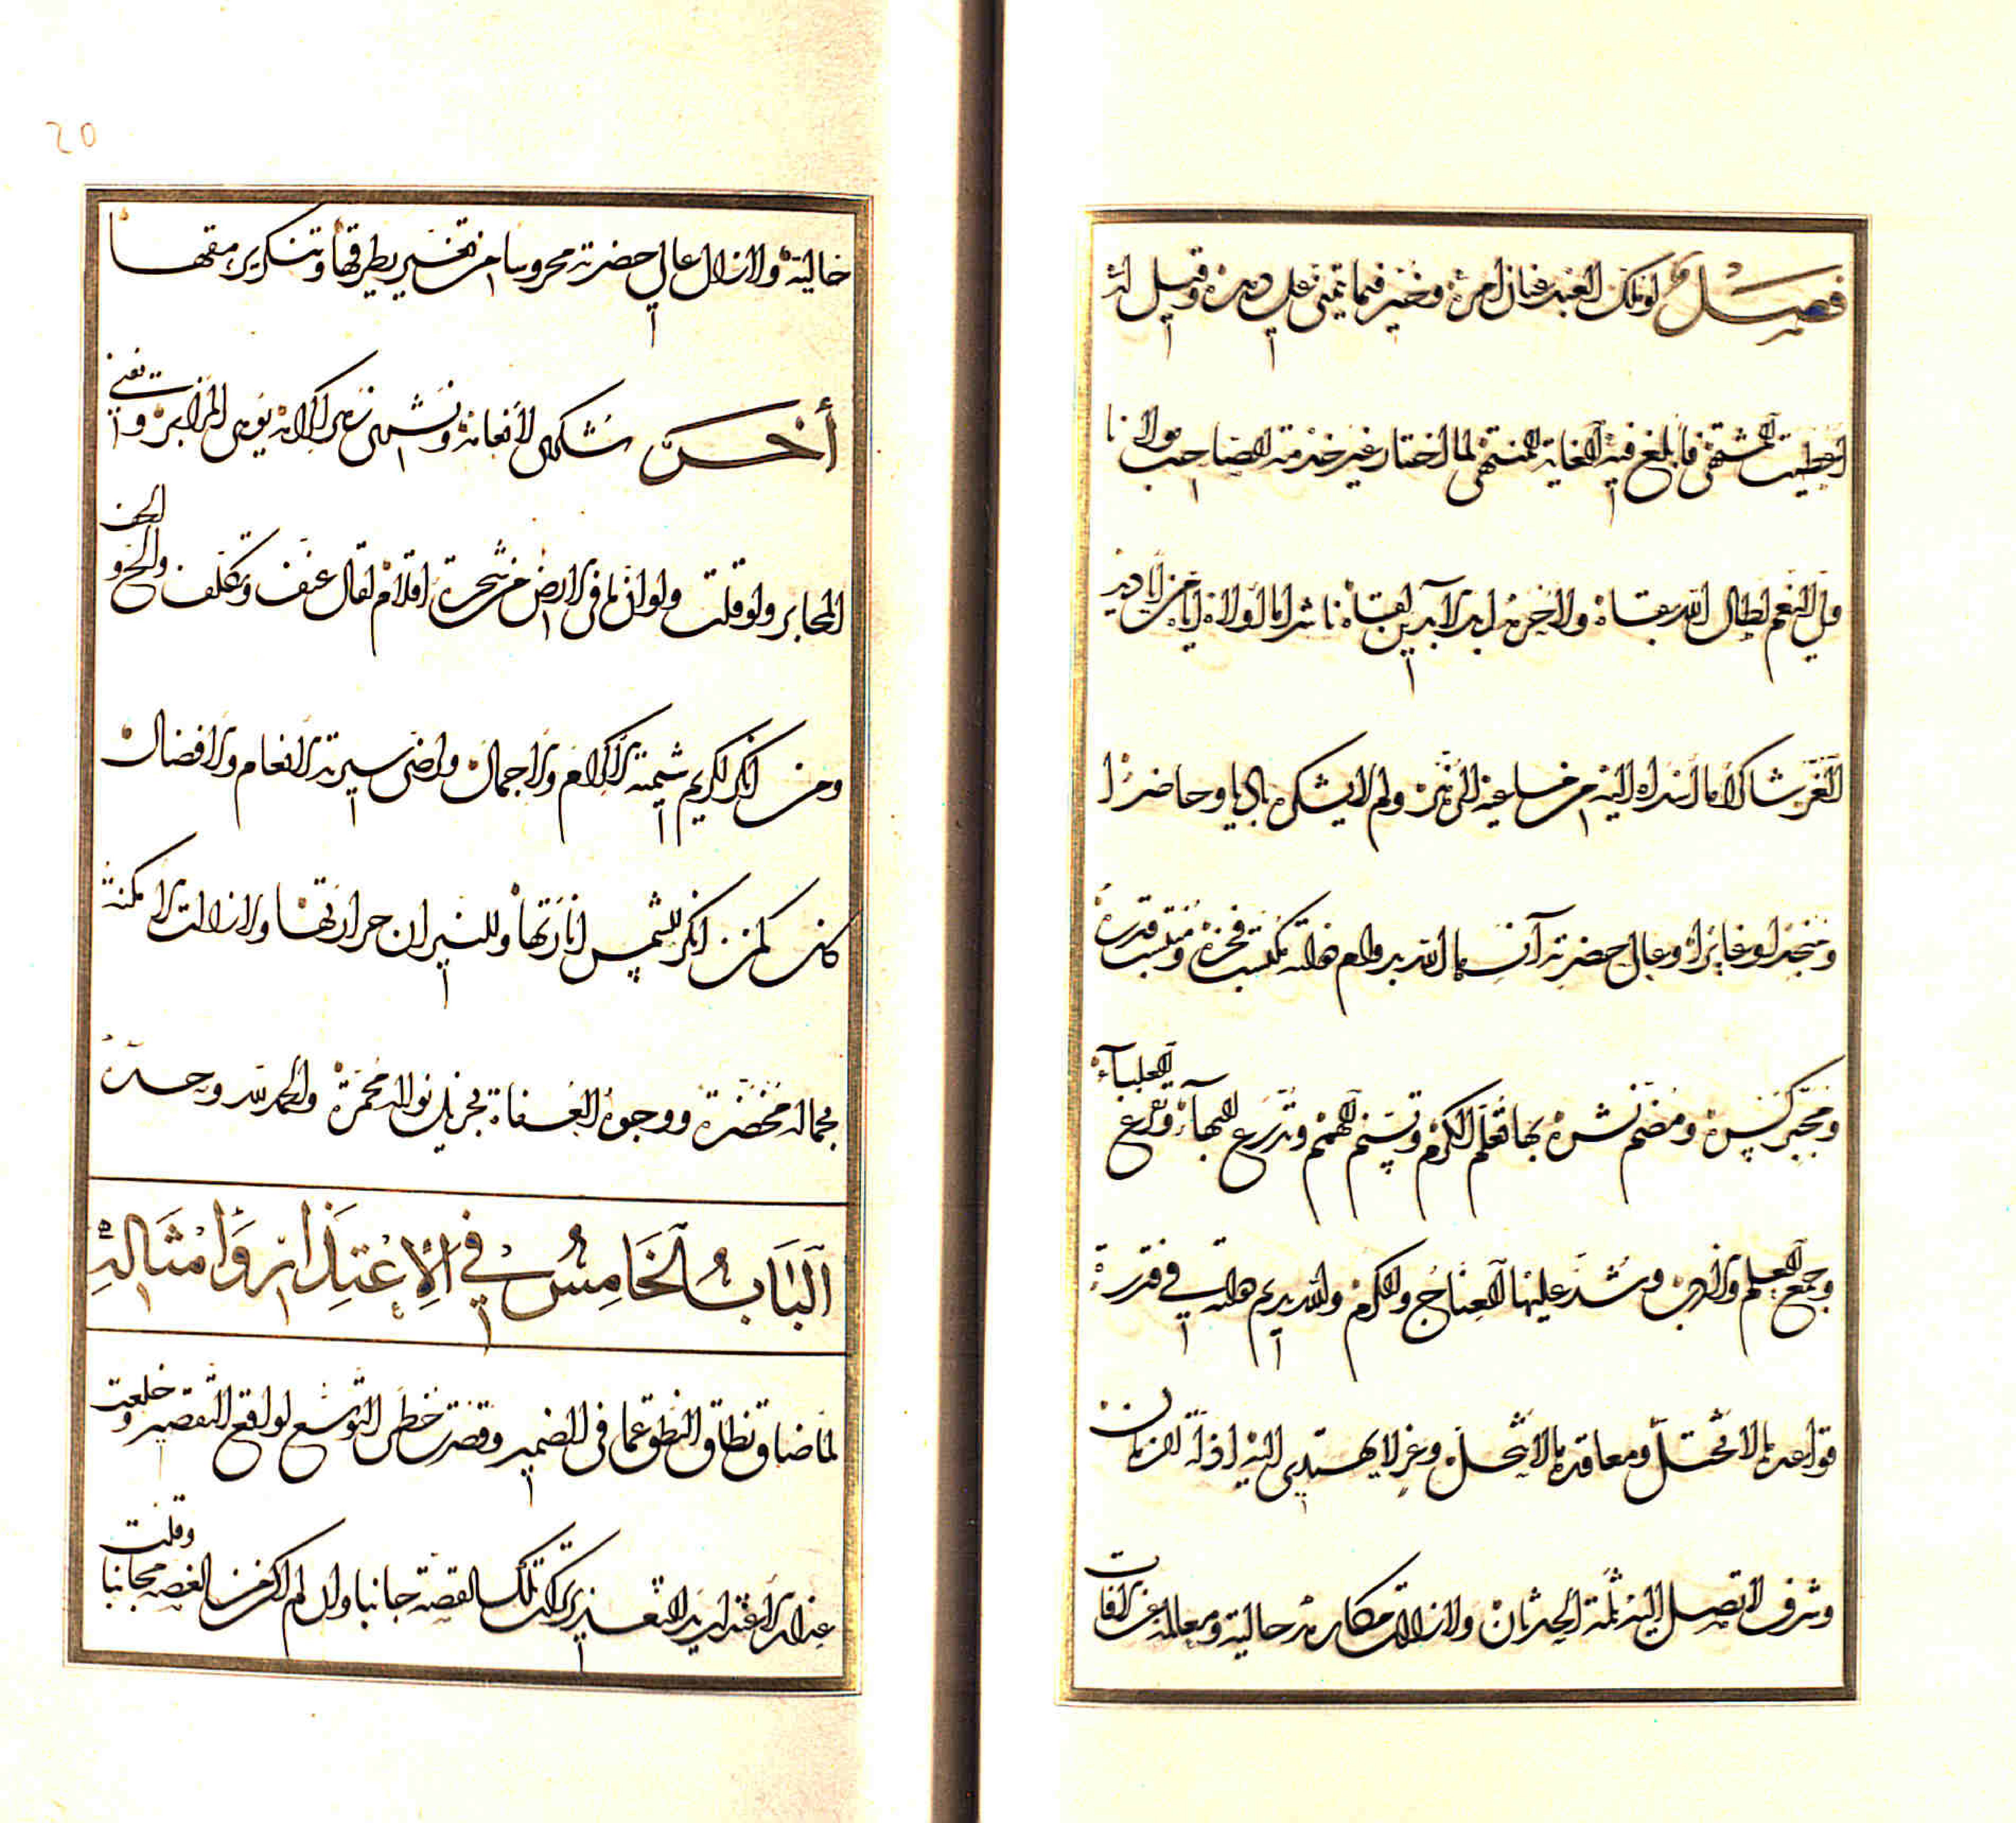 فصل لو ملك العبد عنان امره وخير فيما تمنى على دهره وقيل له
اعطيت المشتهى فابلغ فيه الغاية المنتهى لما اختار غير خدمة الصاحب مولانا
ولي النعم اطال الله بقاه ولا اخر ابد الآبدين لقاه ناشرا ما اولاه من
الغر شاكرا ما اسداه اليه من مساعيه ولم لا يشكره باديا وحاضرا
ومنجدا وغايرا وعالي حضرته آنسها الله بدوام هلته مكتسب فخره ومقتبس قدره
ومجبر كسره ومضم نشره بها تعلم الكرم وتسنم الهمم وتدرع البهاء وتفرع العلياء
وجمع العلم والادب وشد عليها العناج والكرب والله يديم هلته في قدرة
قواعدها لا تختل ومعاقدها لا تنحل وعز لا يهتدي اليه اذلة الزمان
وشرف لا تصل اليه ثلمة الحدثان ولا زالت مكارمه حالية ومعالمه عن الآفات
20
خالية ولا زال عالي حضرته محروسا من تغيير يطرقها وتنكير يمقتها
آخر شكري لانعامه ونشري لاكرامه يوهي المزابر وتفني
المحابر ولو قلت ولو ان ما في الارض من شجرة اقلام لقال عنف وتكلف والح والحف
ومن انكر لكريم شيمة الاكرام والاجمال وارضى سيرة الانعام والافضال
كان كمن انكر للشمس انارتها وللنيران حرارتها ولا زالت الامكنة
بجماله مخضرة ووجوه العفاة بجزيل نواله محمرة والحمد لله وحده
الباب الخامس في الاعتذار وامثاله
لما ضاق نطاق النطق عما في الضمير وقصرت خطى التوسع لواقع التقصير وخلعت
عذار الاعتذار يد التعذير تركت تلك القصة جانبا وان لم اكن من الغصة مجانبا وقلت